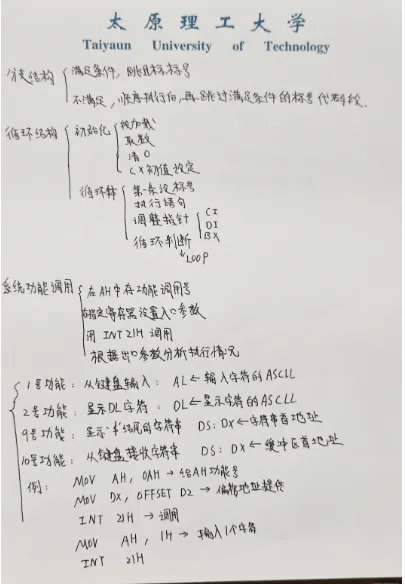 太原理工大学
Taiyaun University of Technology
分支结构 满足条件，跳目标标号
不满足，顺序执行后，再跳过满足条件的标号代码段.
循环结构 初始化 段加载
取数
清0
CX初值设定
循环体 第一条设标号
执行语句
调整指针 CI
DI
BX
循环判断
LOOP
系统功能调用 在AH中存功能调用号
在指定寄存器设置入口参数
用 INT 21H 调用
根据出口参数分析执行情况
1号功能：从键盘输入：AL←输入字符的ASCLL
2号功能：显示DL字符：DL←显示字符的ASCLL
9号功能：显示'$'结尾的字符串 DS：DX←字符串首地址
10号功能：从键盘接收字符串 DS：DX←缓冲区首地址
例： MOV AH，0AH→给AH功能号
MOV DX，OFFSET D2→偏移地址操作
INT 21H→调用
MOV AH，1H→输入1个字符
INT 21H